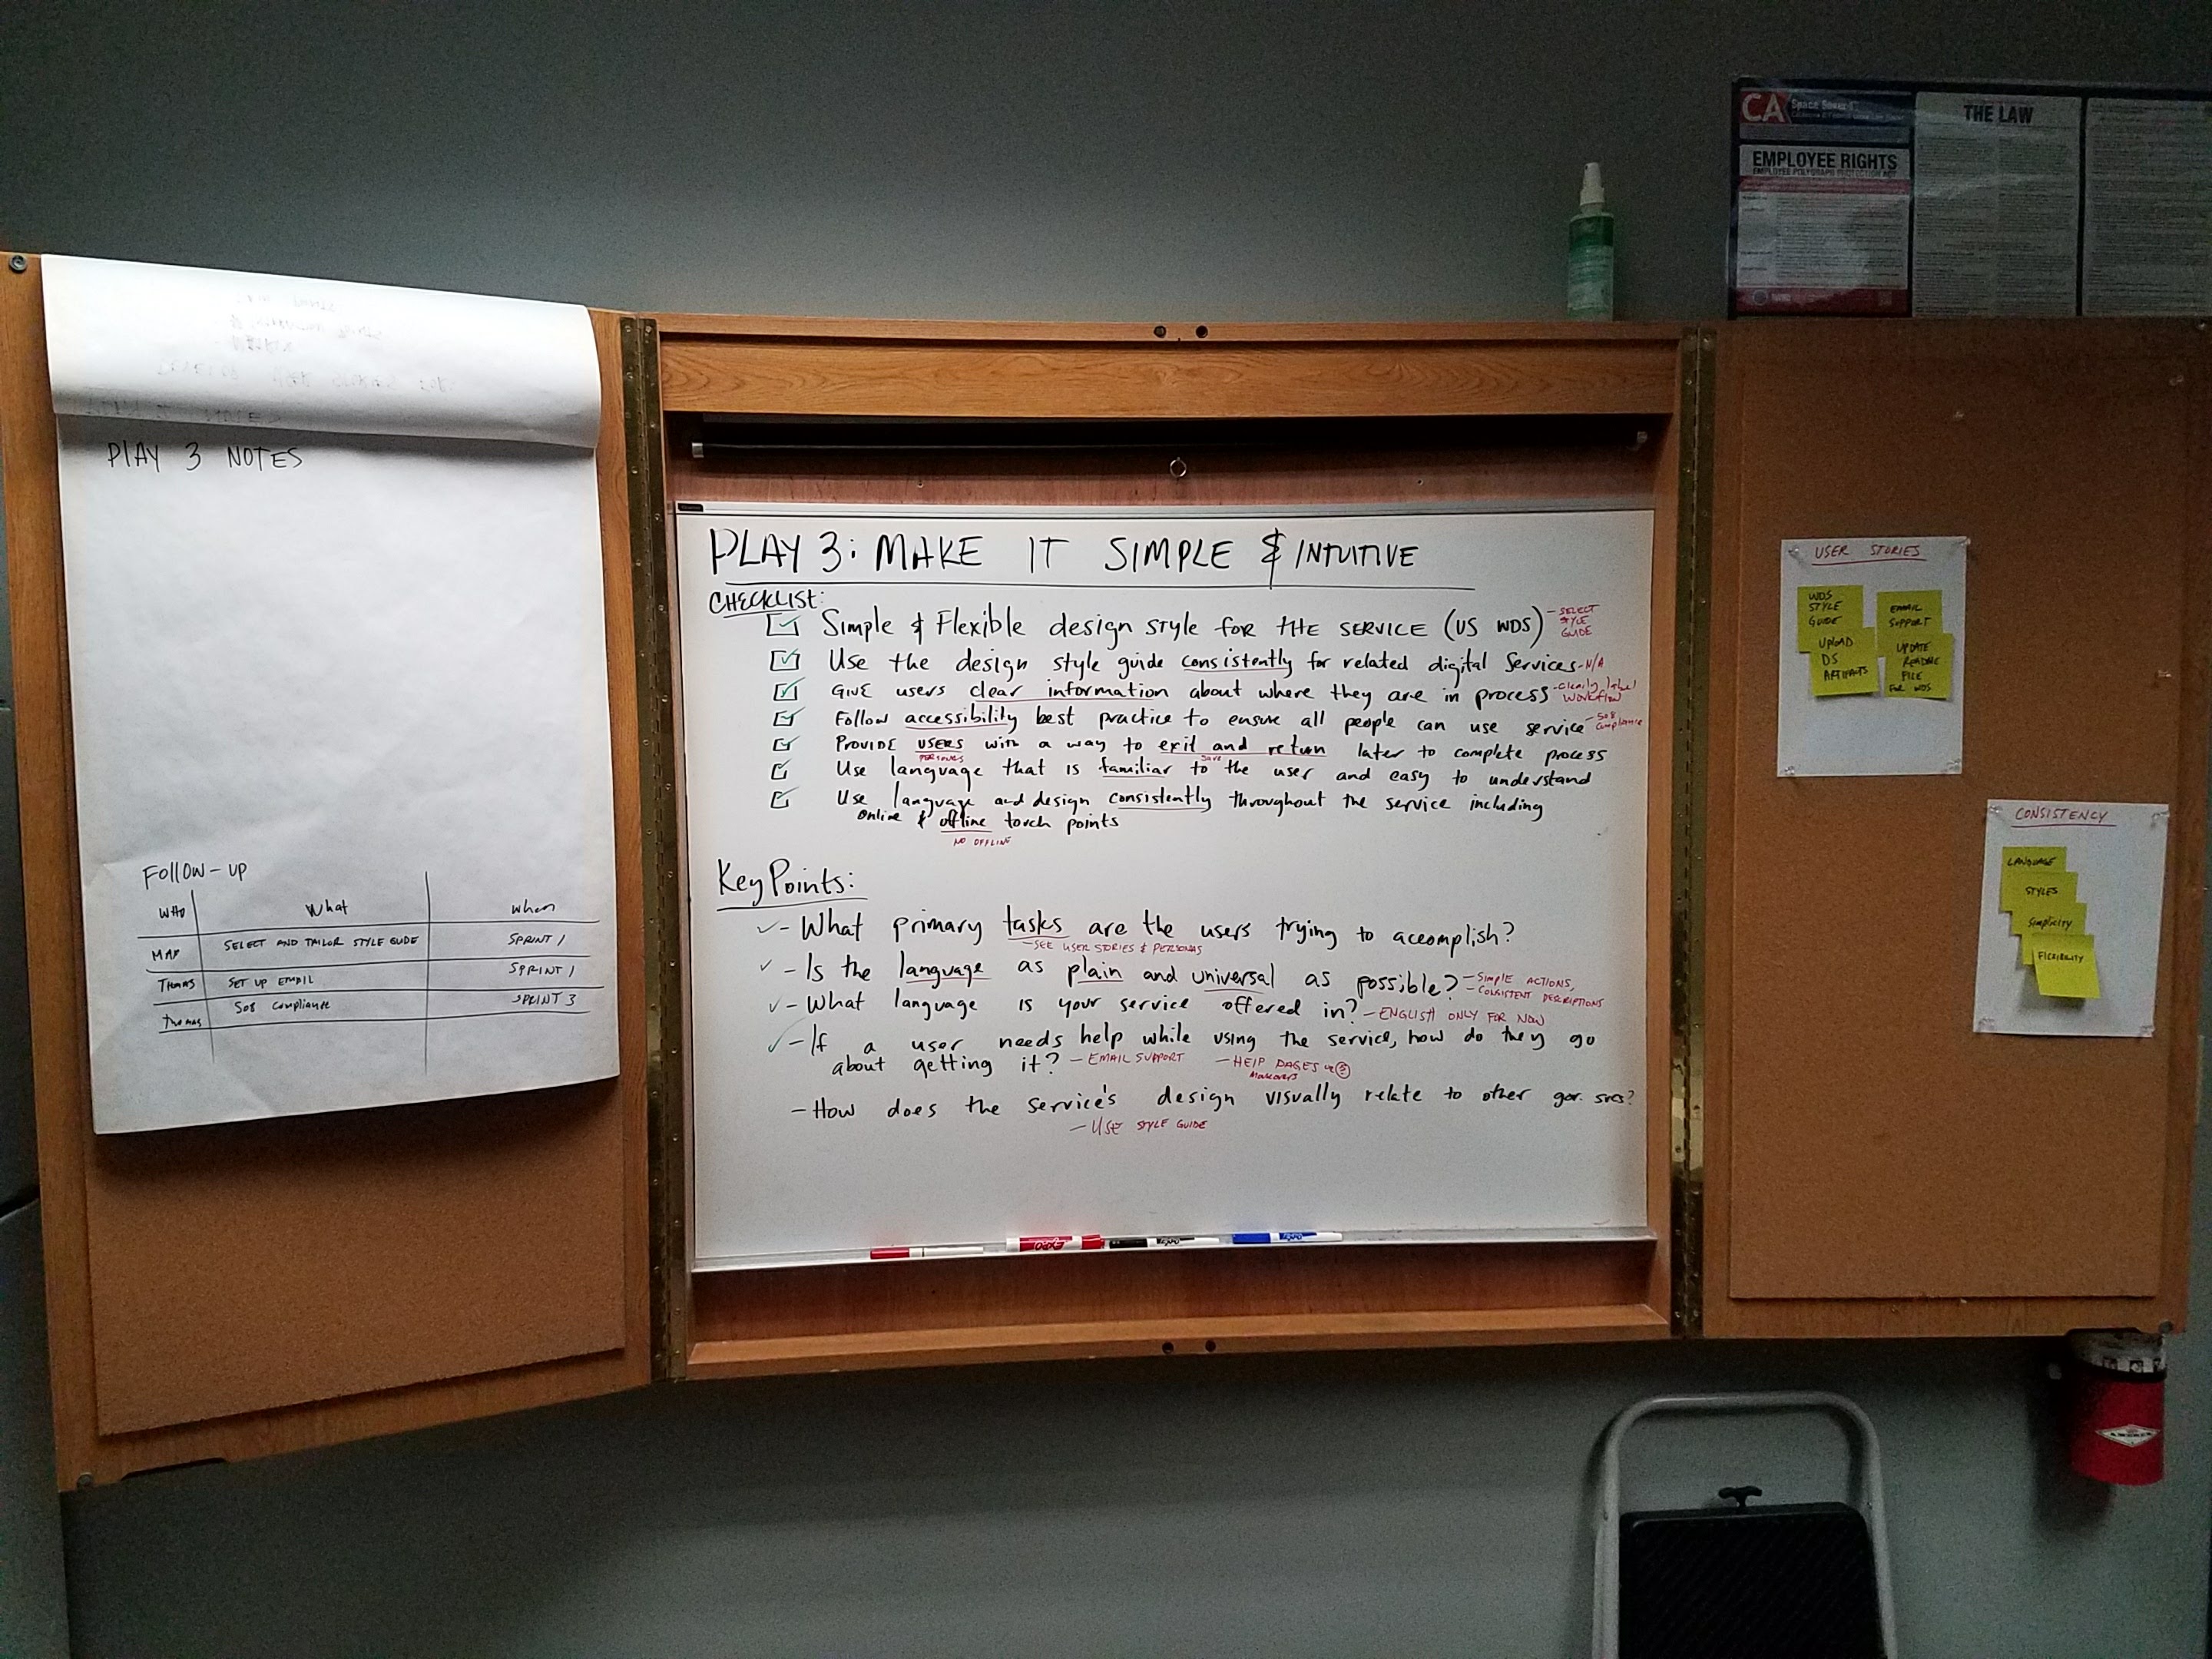 PLAY 3 NOTES
Follow-up
WHO What When
MAX SELECT AND TAILOR STYLE GUIDE SPRINT 1
Thomas SET UP EMAIL SPRINT 1
Thomas 508 Compliance SPRINT 3
PLAY 3: MAKE IT SIMPLE & INTUITIVE
CHECKLIST:
Simple & Flexible design style for THE SERVICE (US WDS) - SELECT
STYLE
GUIDE
Use the design style guide consistently for related digital Services - N/A
GIVE users clear information about where they are in process - clearly label
workflow
Follow accessibility best practice to ensure all people can use service - 508
compliance
PROVIDE USERS with a way to exit and return later to complete process
PERSONAS save
Use language that is familiar to the user and easy to understand
Use language and design consistently throughout the service including
online & offline touch points
NO OFFLINE
Key Points:
- What primary tasks are the users trying to accomplish?
- SEE USER STORIES & PERSONAS
- Is the language as plain and universal as possible? - SIMPLE ACTIONS,
- CONSISTENT DESCRIPTIONS
- What language is your service offered in? - ENGLISH ONLY FOR NOW
- If a user needs help while using the service, how do they go
about getting it? - EMAIL SUPPORT - HELP PAGES
- How does the service's design visually relate to other gov. svcs?
- USE STYLE GUIDE
CA Space Saver
EMPLOYEE RIGHTS
EMPLOYEE POLYGRAPH PROTECTION ACT
THE LAW
USER STORIES
WDS
STYLE
GUIDE
EMAIL
SUPPORT
UPLOAD
DS
ARTIFACTS
UPDATE
README
FILE
FOR WDS
CONSISTENCY
LANGUAGE
STYLES
Simplicity
FLEXIBILITY
EXPO
EXPO
EXPO